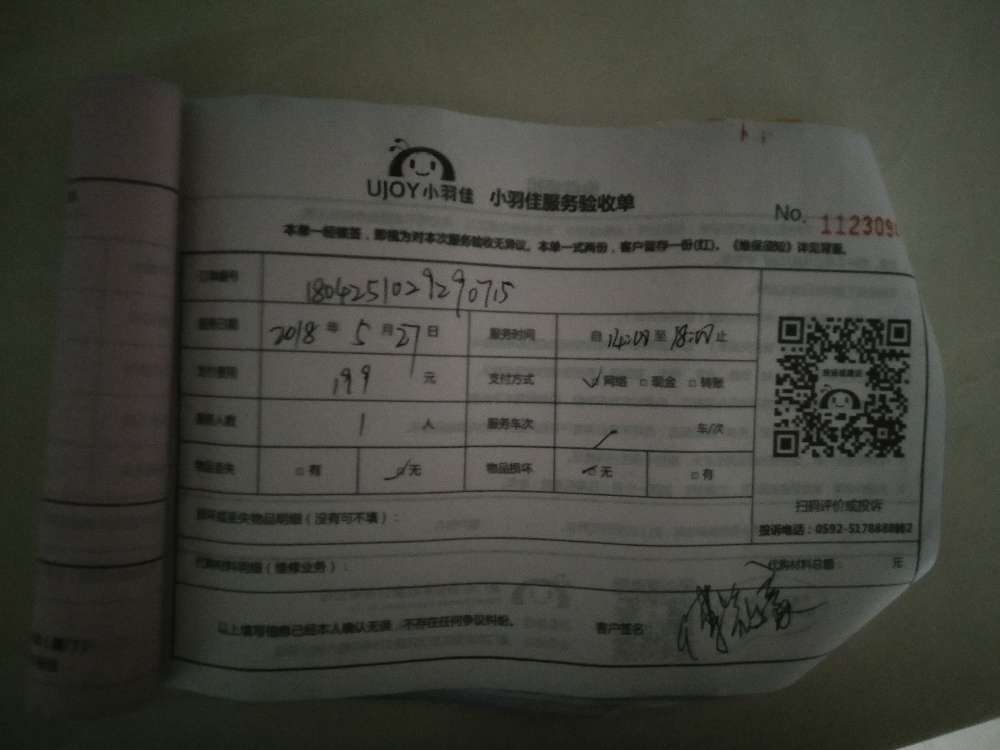 UJOY小羽佳 小羽佳服务验收单
No. 112309
本单一经签, 即视为对本次服务验收无异议。本单一式两份, 客户留存一份(红)。《维保须知》详见背面。
订单编号 180425102929 0715
服务日期 2018 年 5 月 27 日 服务时间 自 14:00 至 18:00 止
支付费用 199 元 支付方式 ✓网络 □现金 □转账
服务人数 1 人 服务车次 / 车/次
物品丢失 □有 ✓无 物品损坏 ✓无 □有
损坏或丢失物品明细(没有可不填):
扫码评价或投诉
投诉电话:0592-5178888
代购材料明细(维修业务): 代购材料总额: 元
以上填写信息已经本人确认无误,不存在任何争议纠纷。 客户签名: